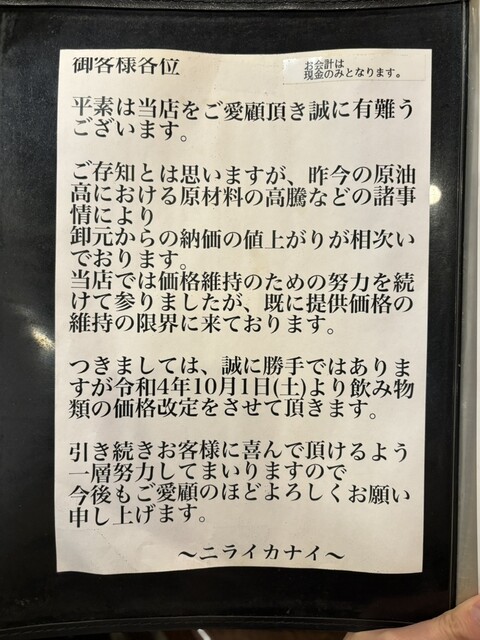 御客様各位
お会計は
現金のみとなります。
平素は当店をご愛顧頂き誠に有難う
ございます。
ご存知とは思いますが、昨今の原油
高における原材料の高騰などの諸事
情により
卸元からの納価の値上がりが相次い
でおります。
当店では価格維持のための努力を続
けて参りましたが、既に提供価格の
維持の限界に来ております。
つきましては、誠に勝手ではありま
すが令和4年10月1日(土)より飲み物
類の価格改定をさせて頂きます。
引き続きお客様に喜んで頂けるよう
一層努力してまいりますので
今後もご愛顧のほどよろしくお願い
申し上げます。
〜ニライカナイ〜